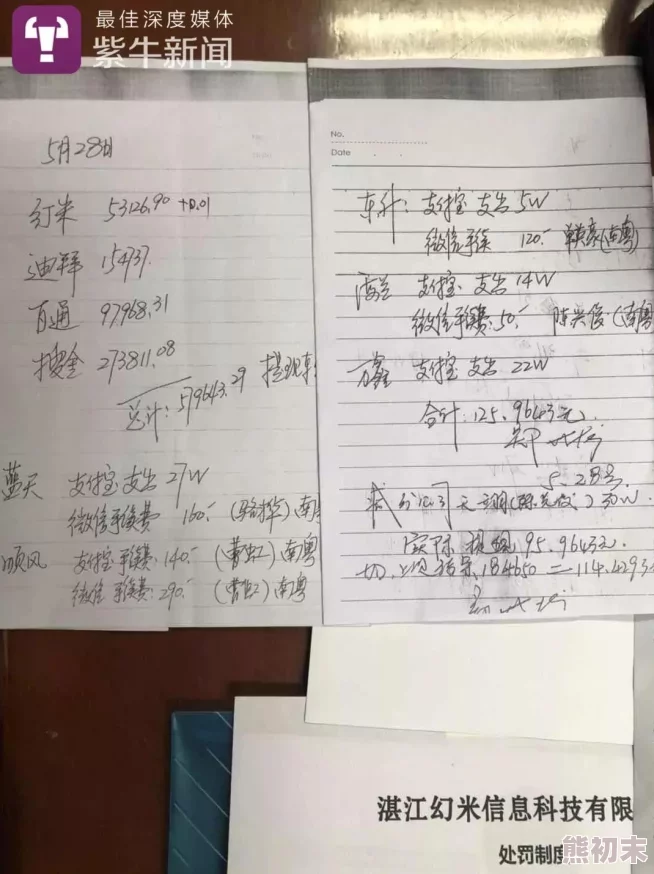 最佳深度媒体
紫牛新闻
5月28日
红米 53126.90 +0.01
迪祥 15437.
百通 97968.31
搜金 273811.08
总计: 579643.29 提现
蓝天 支付宝支出27W
微信手续费 160.- 南
顺风 支付宝手续费140.- (曹虹) 南粤
微信手续费 290.- (曹虹) 南粤
No.
Date
东升: 支付宝支出5W
微信手续 120.- (南粤)
支付宝支出14W
微信手续费 50.- 陈兴俊 (南粤
万鑫 支付宝支出22W
合计: 125.9643元.
5.28号
30W.
实际 95.9643元.
184650 = 114.4293
湛江幻米信息科技有限
处罚制度
熊初末